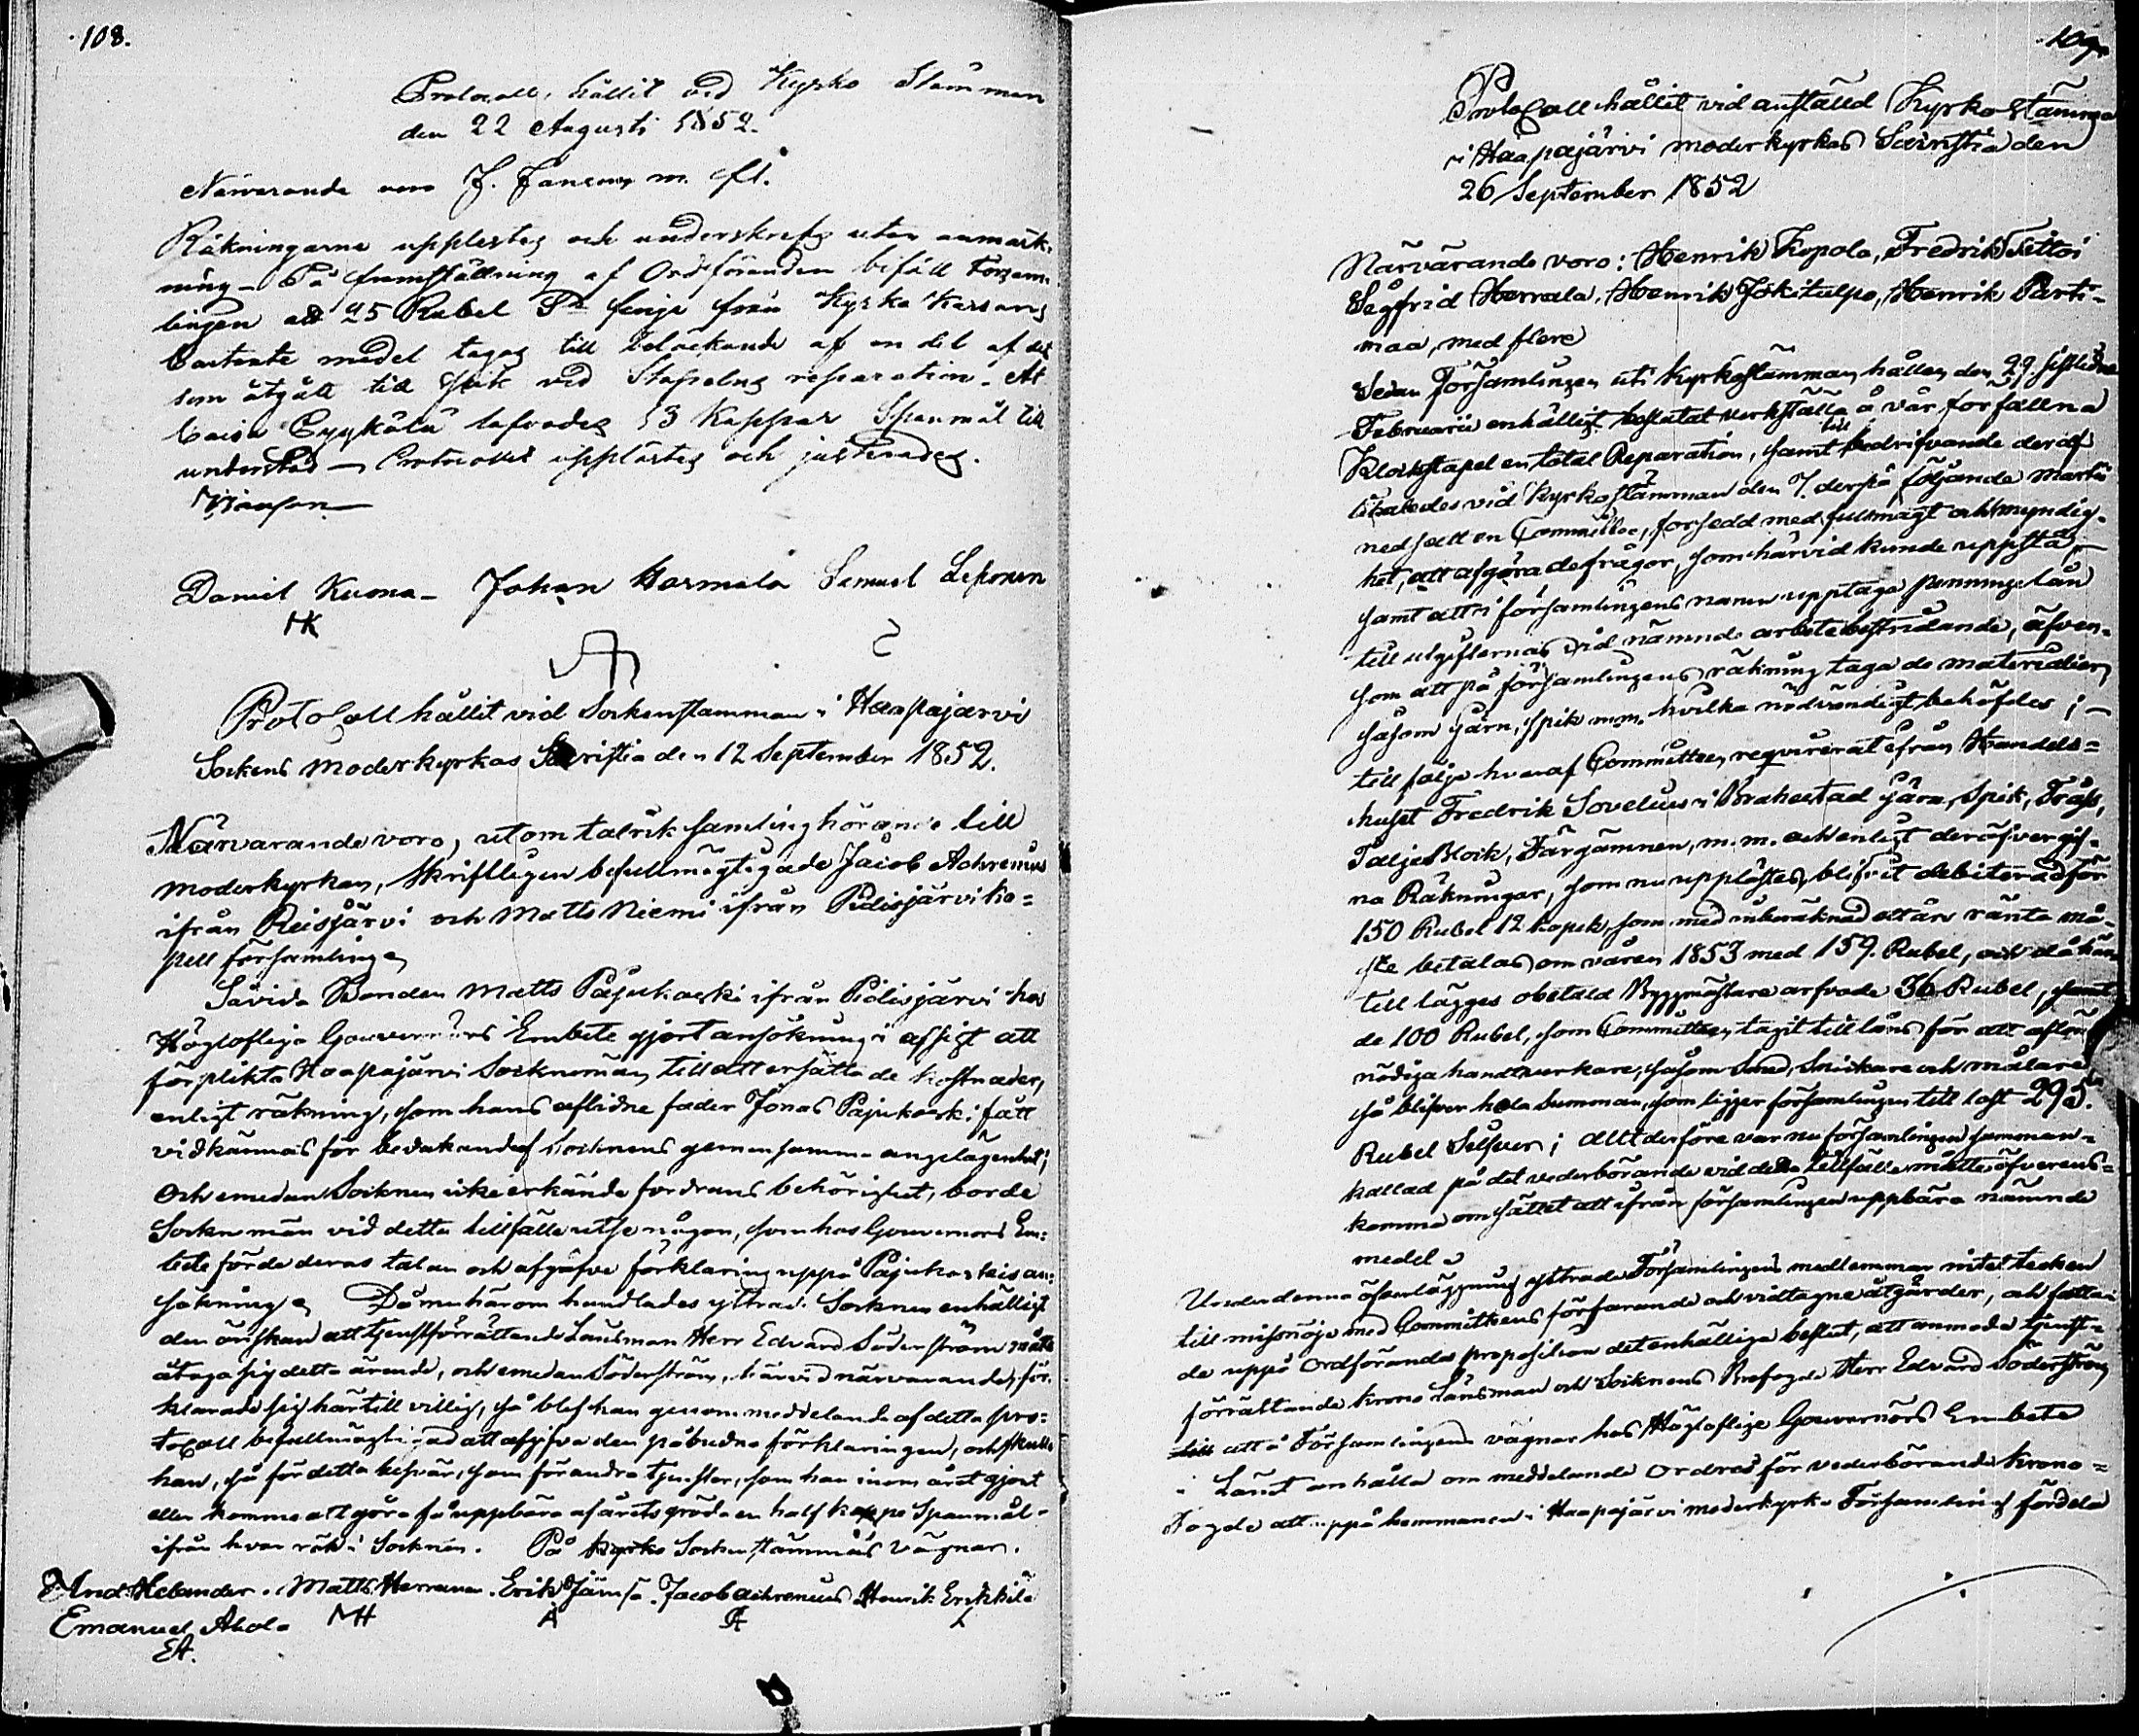 108.
Protocoll, hållit vid Kyrko Stämman
den 22 Augusti 1852.
Närvarande voro J. m. fl.
Räkningarne upplestes och underskrefs utan anmärk-
ning - På framställning af Ordföranden biföll Försam-
lingen att 25 Rubel finge från Kyrko Kassans
contanta medel tagas till betäckande af en del af det
som åtgått till spik vid Stapelns reparation. At
Caisa Pyykölä lofvades 13 Kappar Spanmål till
understöd - Protocollet upplästes och justerades.
Daniel Kuona - Johan Harmala Samuel Leponen
HK
Protocoll hållit vid Sockenstämman i Haapajarvi
Sockens moderkyrkas Sacristia den 12 September 1852.
Närvarande voro, utom talrik samling hörande till
moderkyrkan, skriftligen befullmägtigade Jacob Achrenius
ifrån Reisjärvi och Matts Niemi ifrån Pidisjärvi Ka-
pell församlingen
Såvida Bonden Matts Pajukoski ifrån Pidisjärvi hos
Höglofliga Gouverneurs Embete gjort ansökning i afsigt att
förplikta Haapajärvi Socknemän till att ersätta de kostnader,
enligt räkning, som hans aflidne fader Jonas Pajukoski fått
vidkännas för bevakandet Socknens gemensamma angelägenhet;
Och emedan Socknen icke erkände fordrans behörighet, borde
Sockne män vid detta tillfälle utse någon, som hos Gouvernörs Em-
bete förde deras talan och afgåfve förklaring uppå Pajukoskis an-
sökning. Då nu härom handlades yttrade Socknen enhälligt
den önskan att tjenstförrättande Länsman Herr Edvard Söderström måtte
åtaga sig detta ärende, och emedan Söderström, härvid närvarande, för-
klarade sig härtill villig, så blef han genom meddelande af detta pro-
tocoll befullmägtigad att afgifva den påbudna förklaringen, och skulle
han, så för detta besvär, som för andra tjenster, som han inom året gjort
eller komme att göra få uppbära af årets gröda en half kappe Spanmål
ifrån hvar rök i Socknen. På kyrko Sockenstämmans vägnar.
And: Helander. Matts Herranen. Erik Jämsä. Jacob Achrenius Henrik Erkkilä
Emanuel Ahola MH
EA.
109.
Protocoll hållit vid anställd Kyrkostämma
i Haapajärvi moderkyrkas Sacristia den
26 September 1852
Närvärande voro: Henrik Kopola, Fredrik Tiittoi
Segfrid Herrala, Henrik Jokitulpo, Henrik Parti-
maa, med flere
Sedan Församlingen uti Kyrkostämman hållen den 29. sistledne
Februarii enhälligt beslutat verkställa å vår förfallna
Klockstapel en total Reparation, samt till bedrifvande deraf
likaledes vid Kyrkostämman den 7. derpå följande Martii
nedsatt en Committee, försedd med fullmagt och myndig-
het, att afgöra de frågor, som härvid kunde uppstå,
samt att i församlingens namn upptaga penninge lån
till utgifternas vid nämnde arbete bestridande, äfven-
som att på församlingens räkning taga de materialier
såsom järn, spik m.m. hvilka nödvändigt behöfdes;
till följe hvaraf Committeen reqvirerat ifrån Handels-
huset Fredrik Sovelius i Brahestad järn, spik, Tråss,
Talje Block, Färgämnen, m.m. och enligt deröfver gif-
na Räkningar, som nu upplästes, blifvit debiterad för
150 Rubel 12 kopek, som med inberäknad ett års ränta må-
ste betalas om våren 1853 med 159. Rubel, och då här
till lägges obetald Byggmästare arfvode 36 Rubel, samt
de 100 Rubel, som Committeen tagit till låns för att aflöna
nödiga handtverkare, såsom Smed, Snickare och målare
så blifver hela summan, som ligger församlingen till last 295.
Rubel Silfver; alltderföre var nu församlingen samman-
kallad på det vederbörande vid detta tillfälle måtte öfverens-
komma om sättet att ifrån församlingen uppbära nämnde
medel.
Under denna öfverläggning yttrade Församlingens medlemmar intet tecken
till missnöje med Committeens förfarande och vidtagne åtgärder, och fatta-
de uppå Ordförandes proposition det enhälliga beslut, att anmoda tjenst-
förrättande krono Länsman och Socknens Brofogde Herr Edvard Söderström
till att å Församlingens vägnar hos Höglofliga Gouvernörs Embete
i Länet anhålla om meddelande Ordres för vederbörande Krono-
Fogde att uppå hemmanen i Haapajärvi moderkyrko Församling fördela